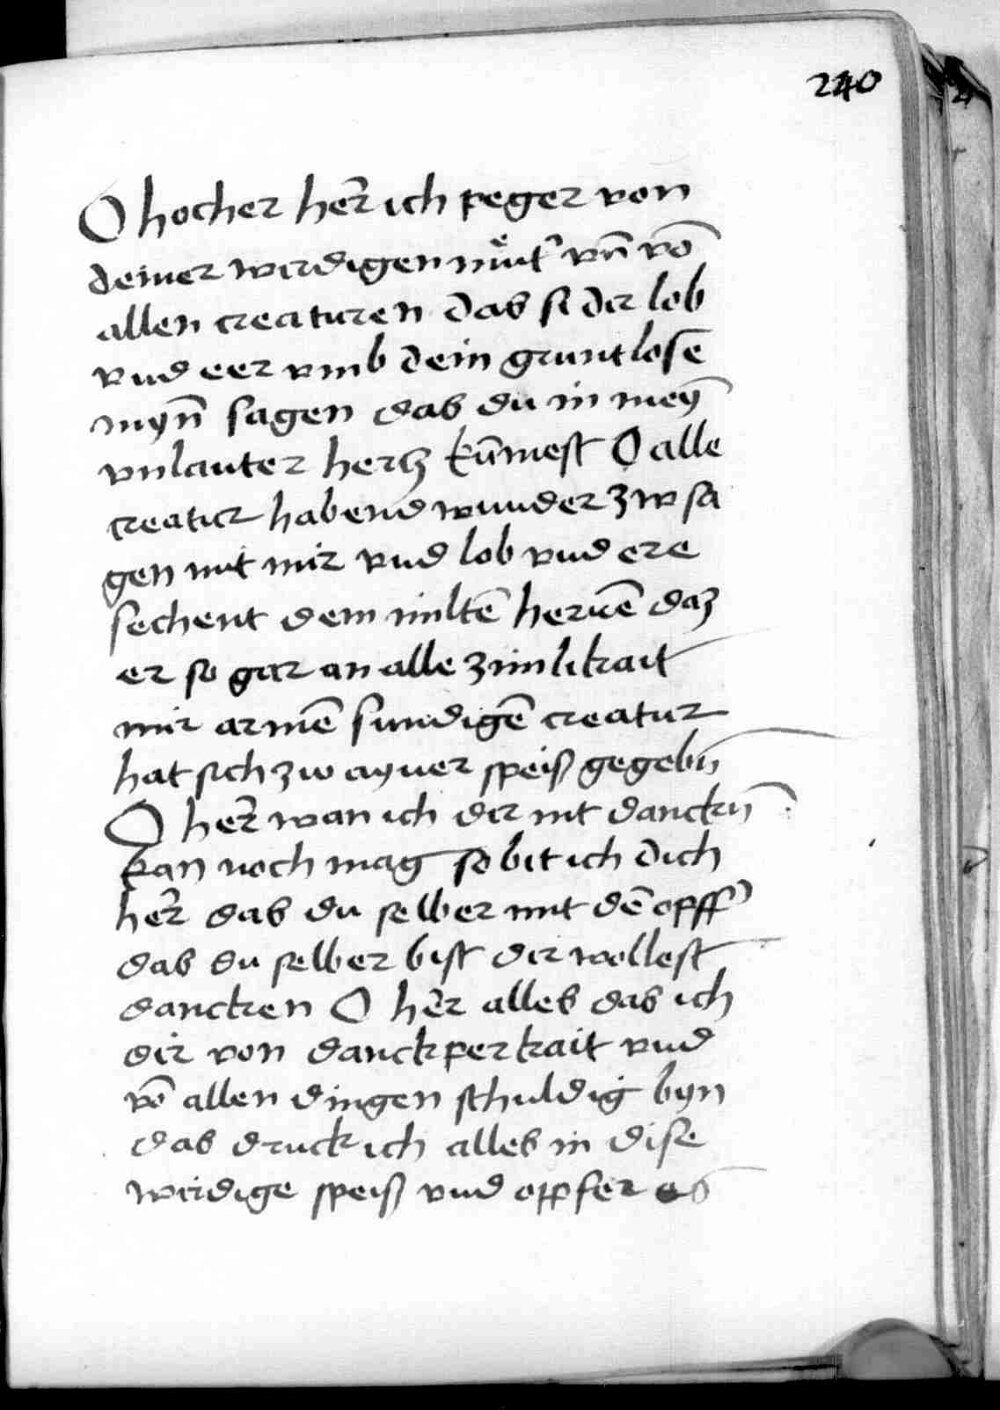 240
O hocher her̄ ich peger von
deiner wirdigen muͤt' vn̄ vō
allen creaturen das si dir lob
vnd eer vmb dein gruntlose
myn̄ sagen das du in meȳ
vnlauter hertz kūmest O alle
creatur habend wunder zw sa
gen mit mir vnd lob vnd ere
sechent dem miltē herrē daz
er so gar an alle zimlikait
mir armē sundigē creatur
hat sich zw ayner speiß gegebn̄
O her̄ wan ich dir nit danckn̄
kan noch mag so bit ich dich
her̄ das du selber mit dē opff'
das du selber bist dir wollest
dancken O her̄ alles das ich
dir von danckperkait vnd
vō allen dingen schuldig byn
das druck ich alles in dise
wirdige speiß vnd opfer es